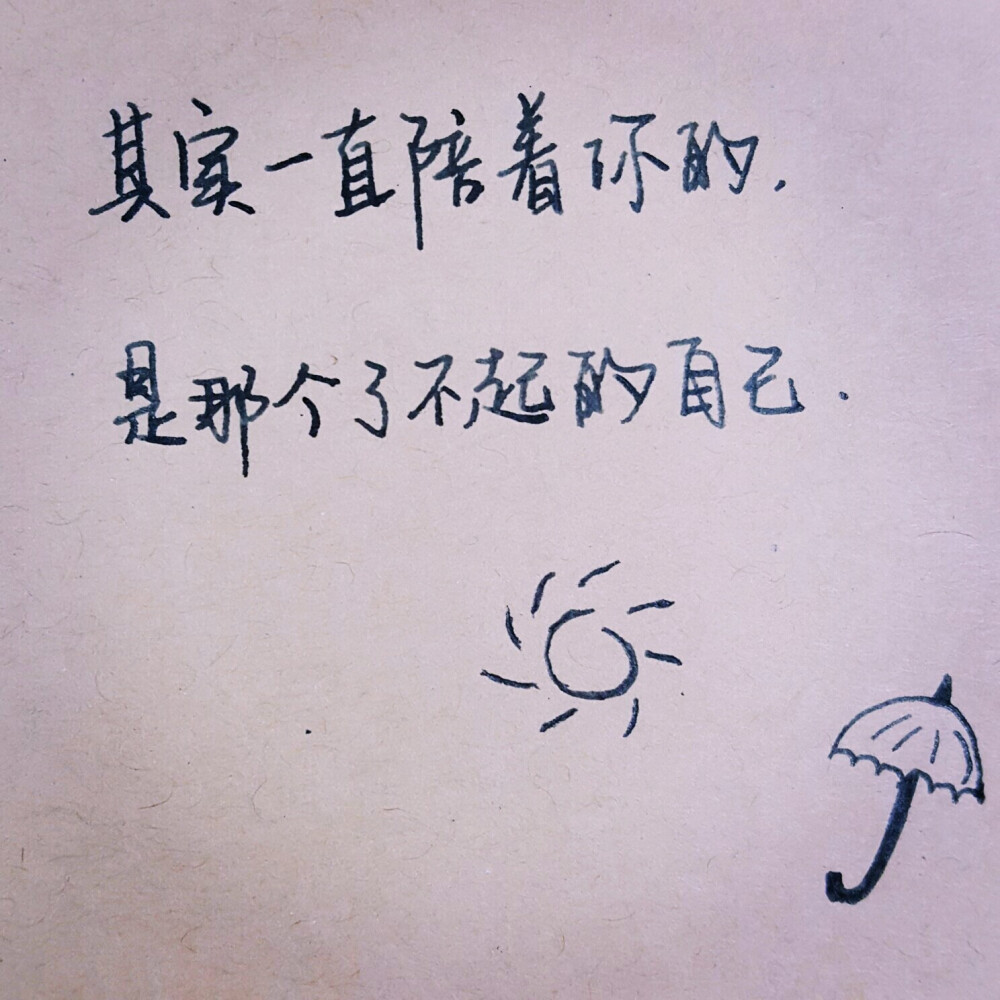 其实一直陪着你的.
是那个了不起的自己.